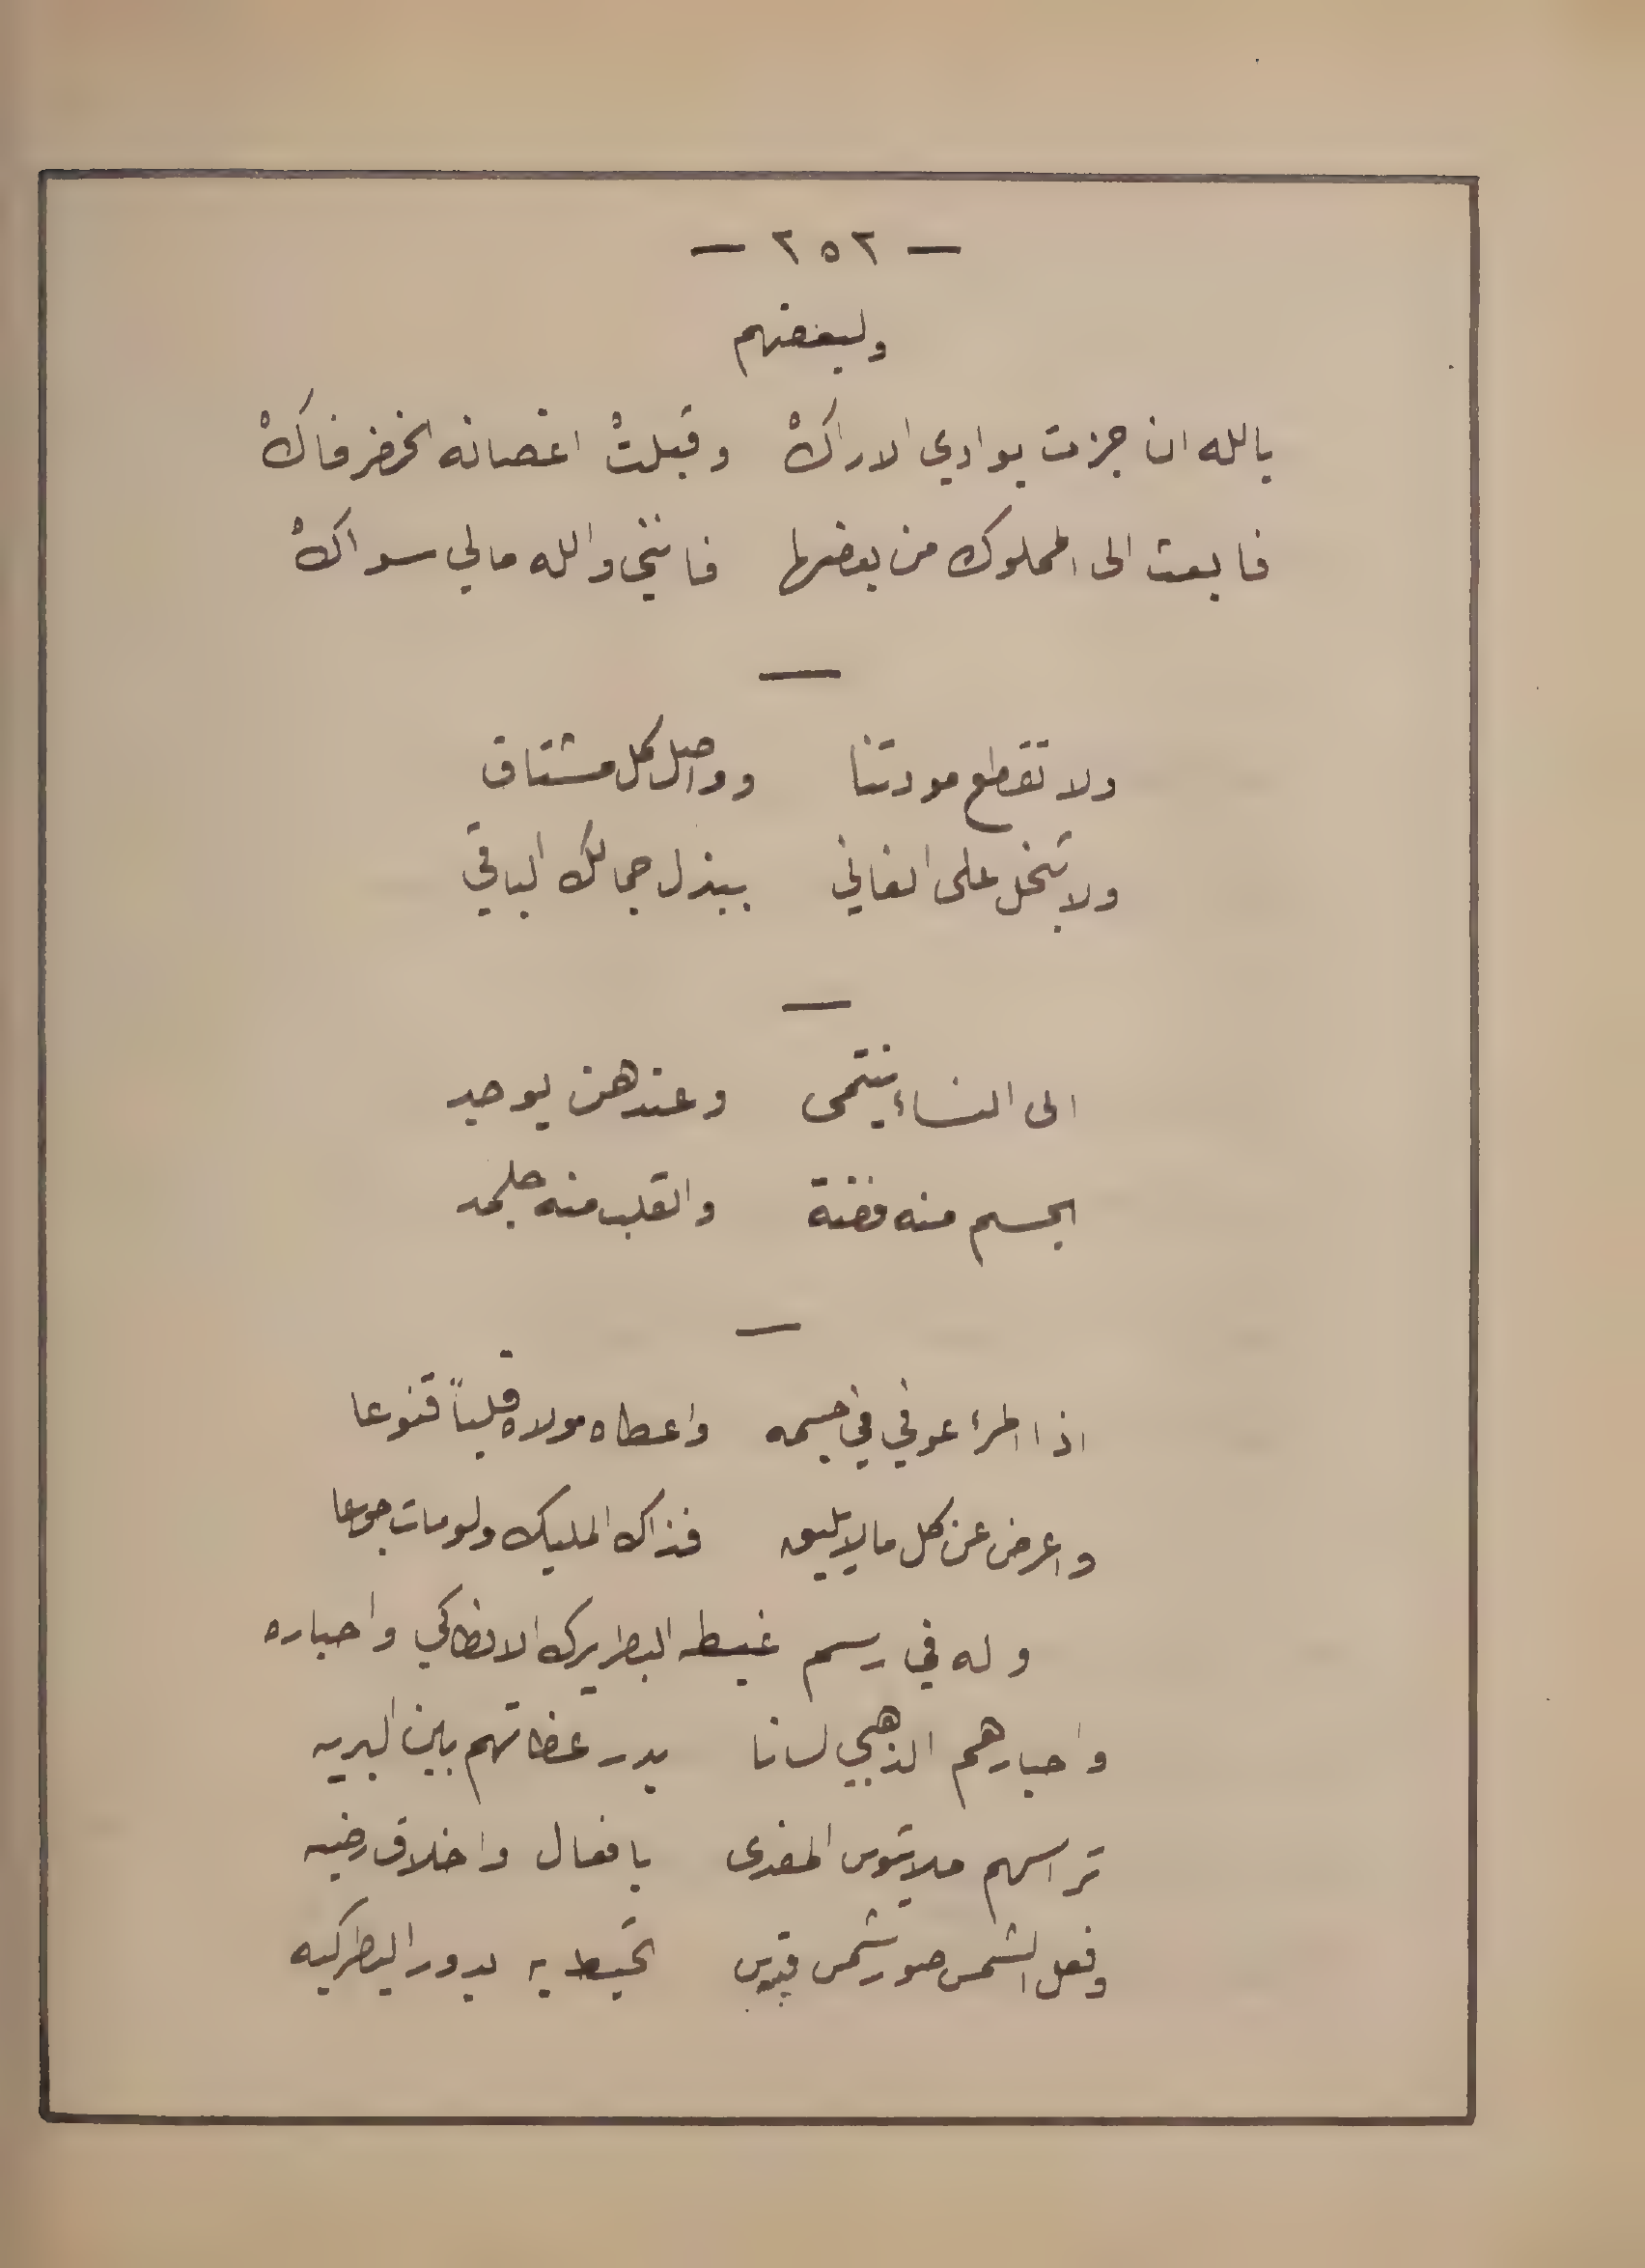 — ٢٥٢ —
ولبعضهم
بالله ان جزت بوادي الاراكْ وقبلتْ اغصانه الخضر فاكْ
فابعث الى المملوك من بعضها فانني والله مالي سواكْ
ولا تقطع مودتنا وواصل كل مشتاق
ولا تبخل على الفاني ببذل جمالك الباقي
الى النساء ينتمى وعندهن يوجد
الجسم منه فضة والقلب منه جلمد
اذا المرء عوفي في جسمه واعطاه مولاه قلباً قنوعا
واعرض عن كل ما لا يليق فذاك المليك ولو مات جوعا
وله في رسم غبطه البطريرك الانطاكي واحباره
واحبارهم الذهبي لسانا بدر عظاتهم بين البريه
تراسهم ملاتيوس المفدى بافعال واخلاق رضيه
وفعل الشمس صور شمس قبرس تحيط به بدور البطركيه